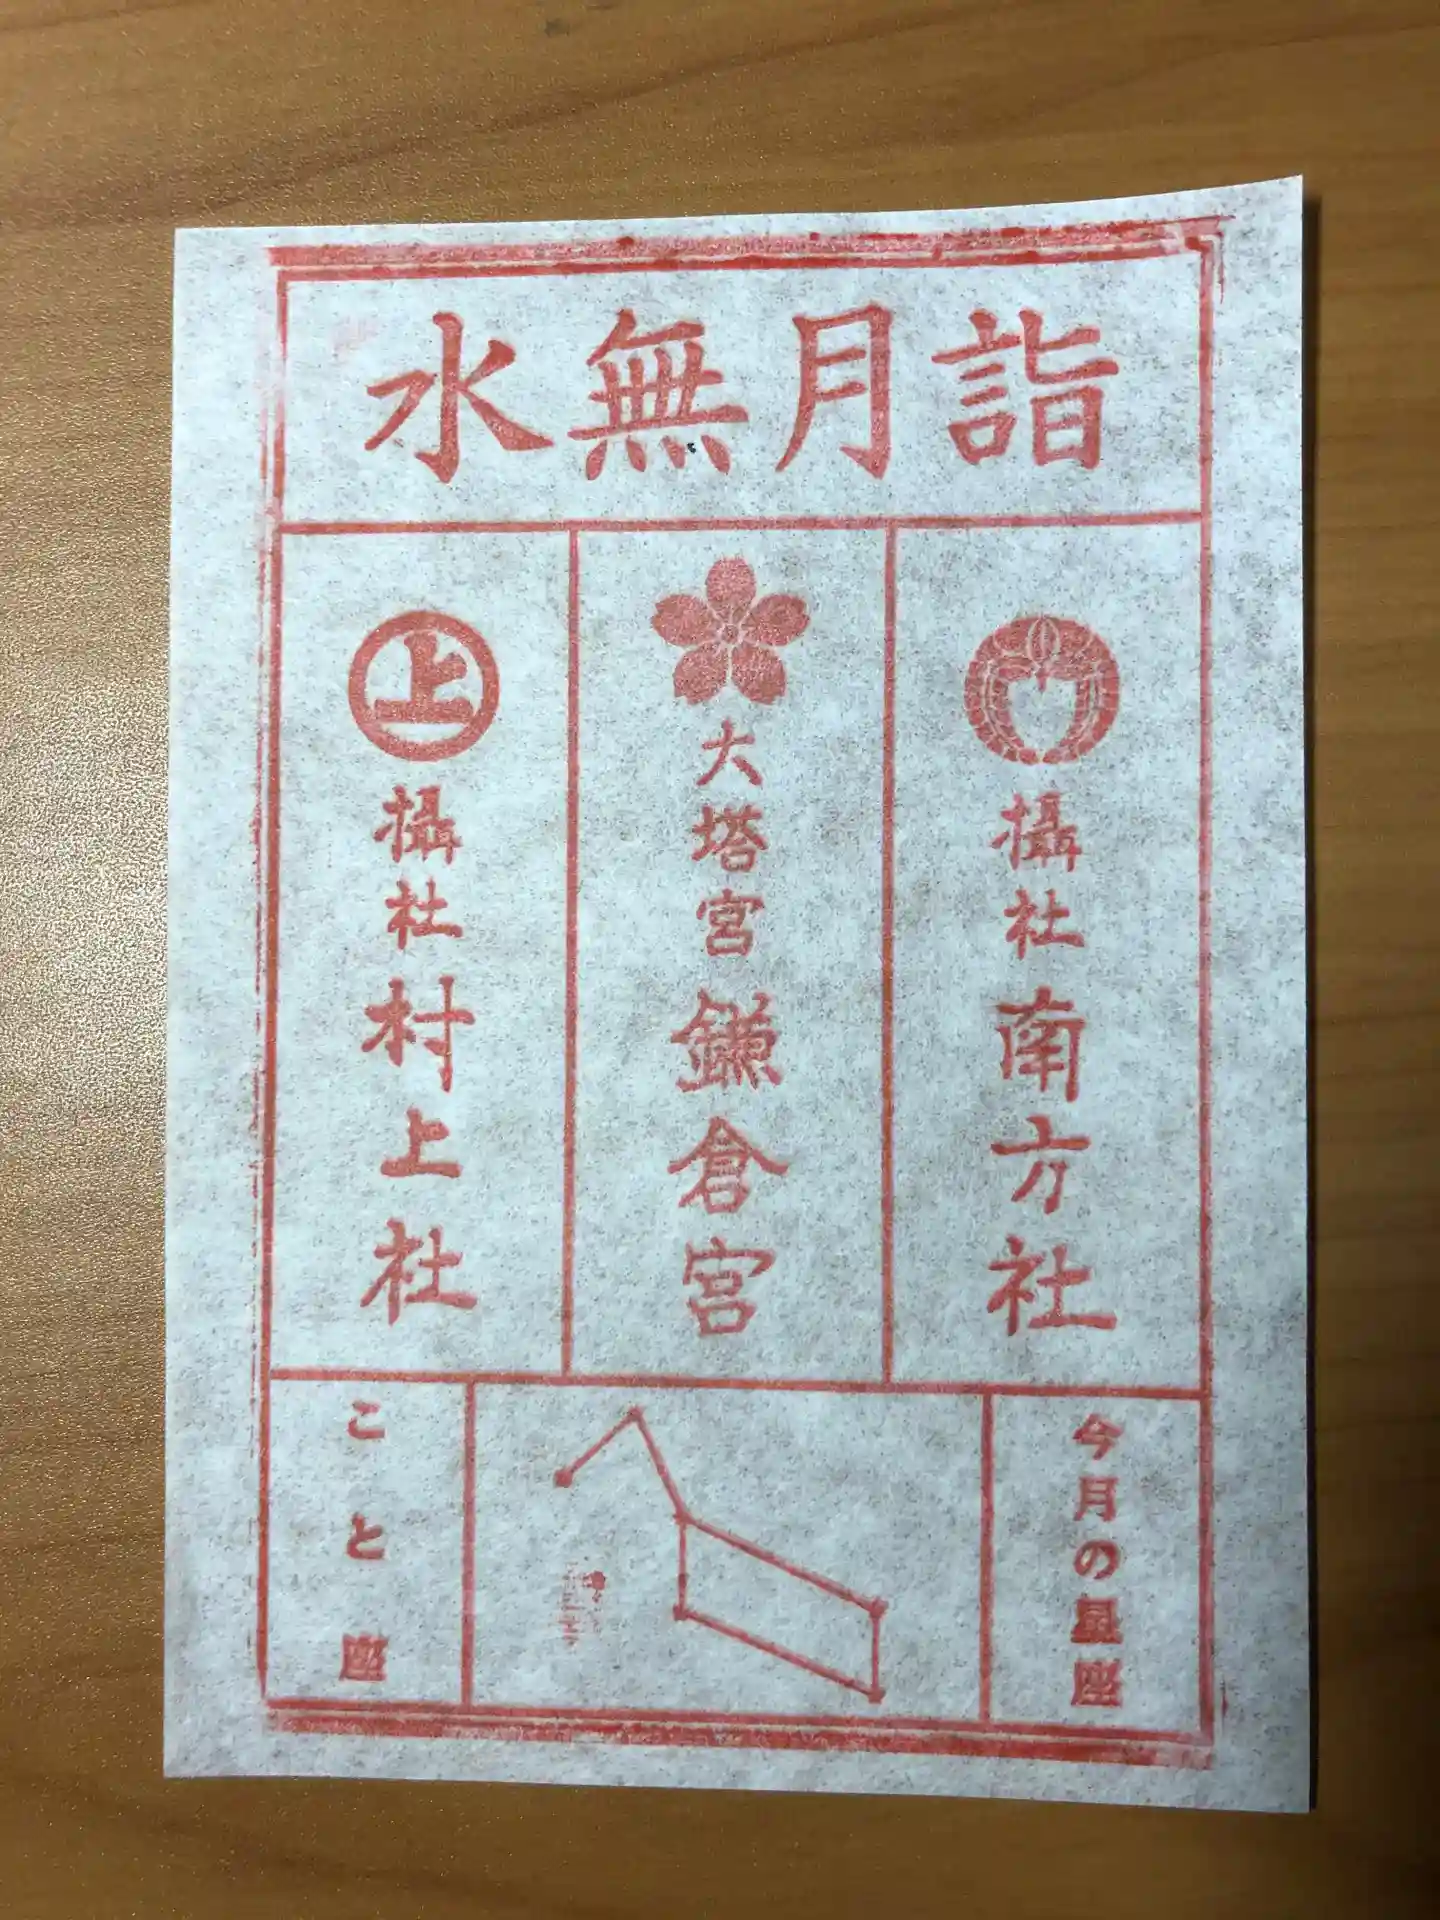 水無月詣
上
攝社 村上社
大塔宮 鎌倉宮
攝社 南方社
こと座
今月の星座